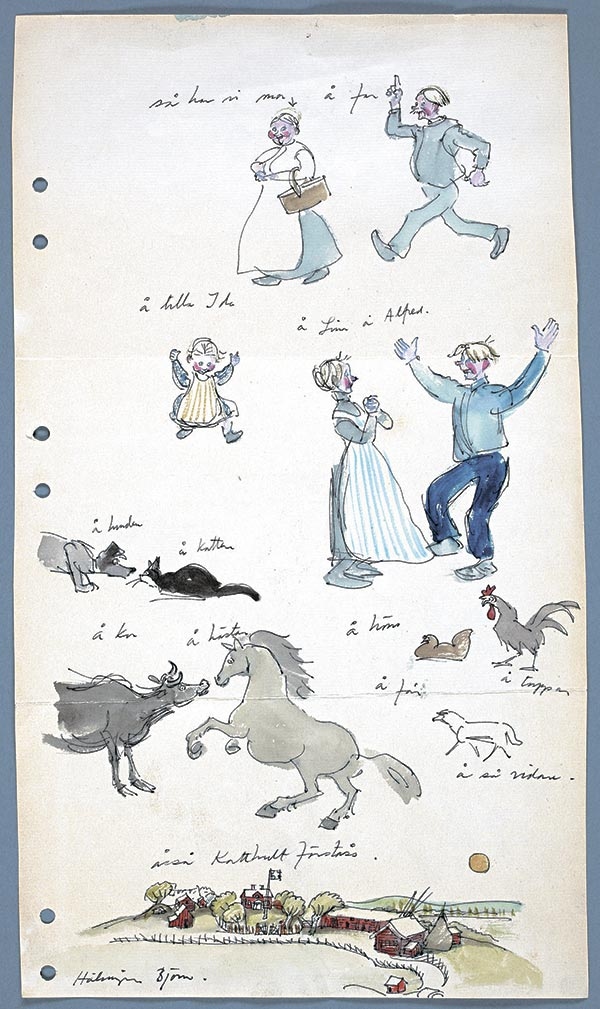 så har vi mor å far
å lilla Ida
å Lina å Alfred.
å hunden
å katten
å ko
å hästen
å höns
å tuppen
å får
å så vidare.
åsså Katthult förståss.
Hälsningar Björn.